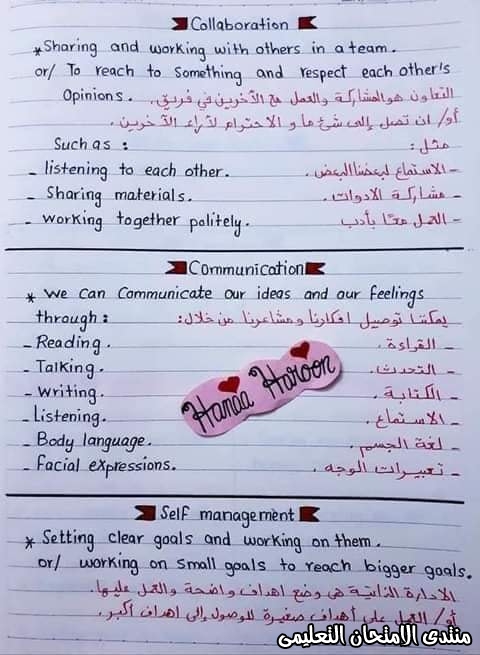 Collaboration
* Sharing and working with others in a team.
or/ To reach to something and respect each other's
Opinions. التعاون هو المشاركة والعمل مع الآخرين في فريق.
أو/ ان تصل إلى شئ ما و الاحترام لآراء الآخرين.
Such as : مثل:
- listening to each other. - الاستماع لبعضنا البعض.
- Sharing materials. - مشاركة الادوات.
- working together politely. - العمل معًا بأدب
Communication
* we can communicate our ideas and our feelings
through : يمكننا توصيل افكارنا و مشاعرنا من خلال:
- Reading. - القراءة.
- Talking. - التحدث.
- writing. - الكتابة.
- Listening. - الاستماع.
- Body language. - لغة الجسم.
- facial expressions. - تعبيرات الوجه.
Hanaa Haroon
Self management
* Setting clear goals and working on them.
or/ working on small goals to reach bigger goals.
الادارة الذاتية هى وضع اهداف واضحة والعمل عليها.
أو/ العمل على أهداف صغيرة للوصول إلى اهداف أكبر.
منتدى الامتحان التعليمى